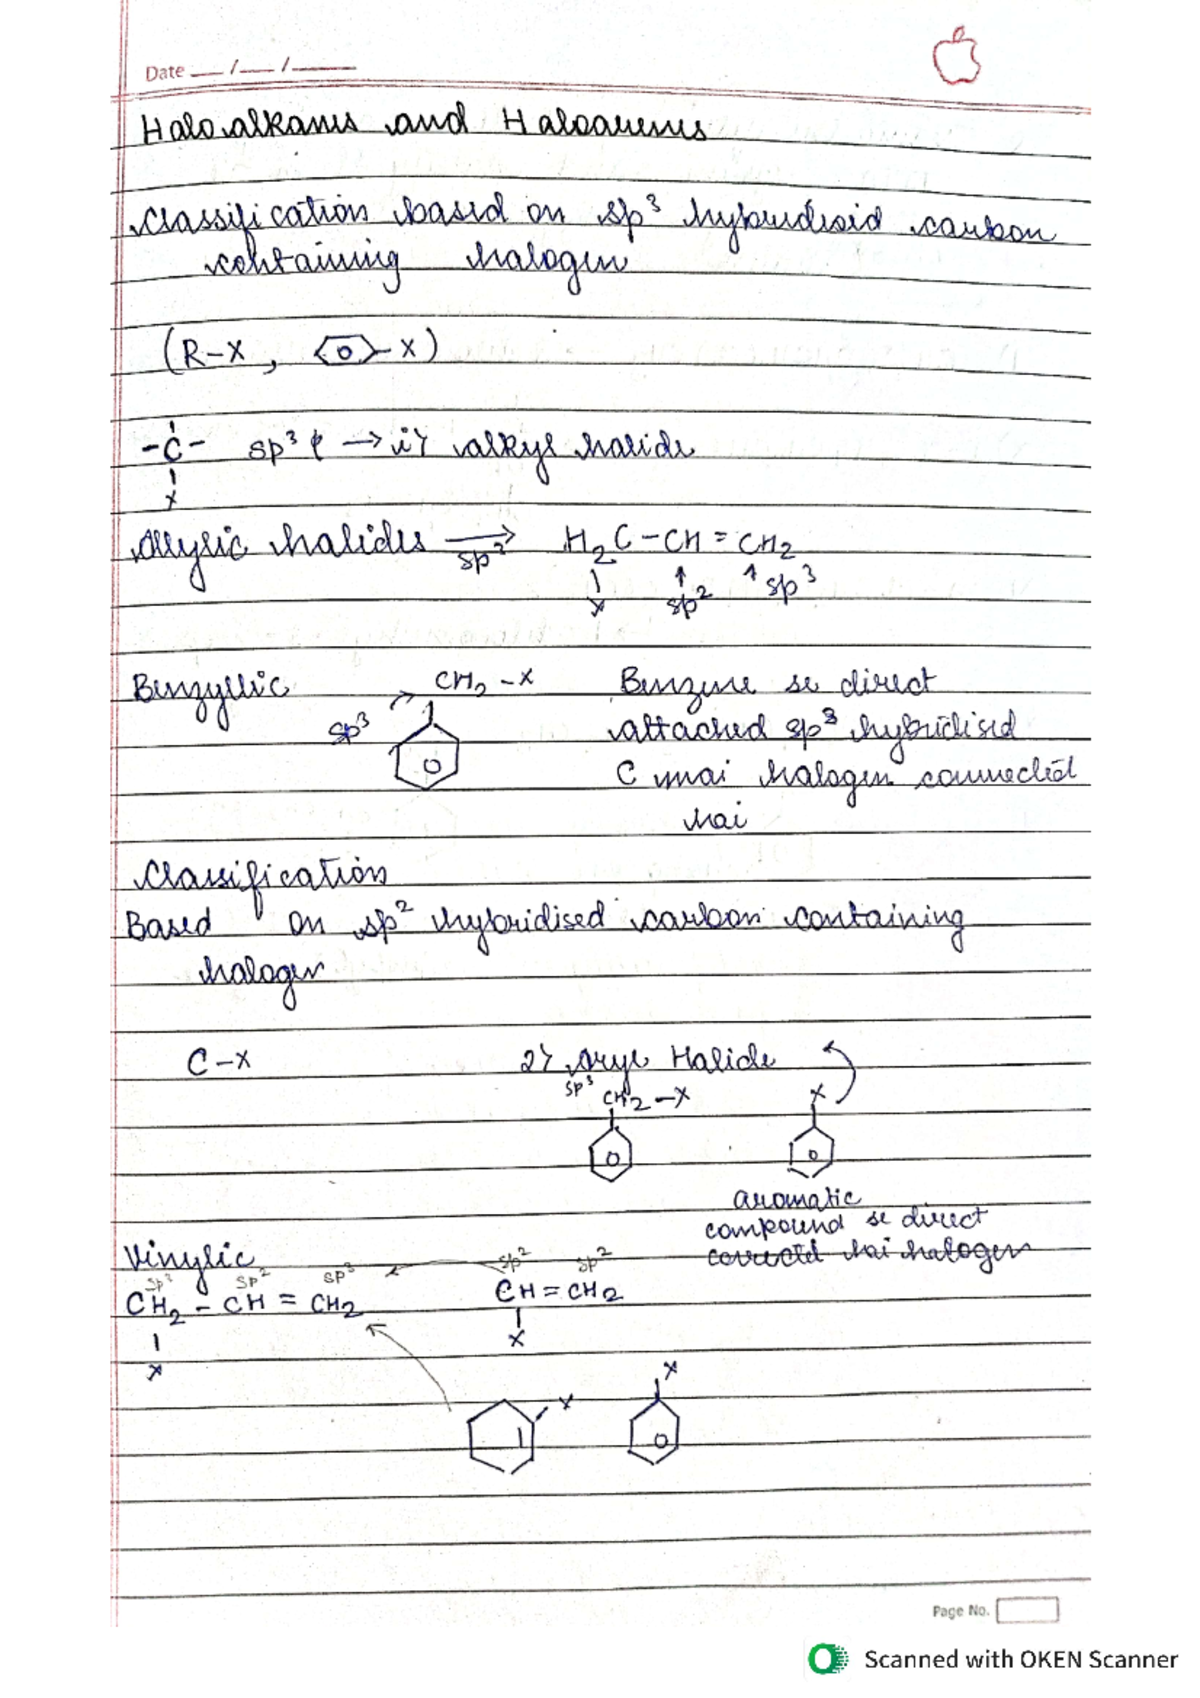 Date __/__/____
Haloalkanes and Haloarenes
Classification based on sp³ hybridised carbon
containing halogen
(R-X, -X)
-C- sp³ C → i} alkyl halide
X
Allylic halides → H₂C-CH=CH₂
sp³
X sp² sp³
Benzyllic CH₂-X Benzene se direct
sp³ attached sp³ hybridised
C mai halogen connected
hai
Classification
Based on sp² hybridised carbon containing
halogen
C-X 2} Aryl Halide
sp³ CH₂-X X
aromatic
compound se direct
connected hai halogen
Vinylic
sp³ sp² sp³ sp² sp²
CH₂-CH=CH₂ CH=CH₂
X X
X X
Page No.
Scanned with OKEN Scanner